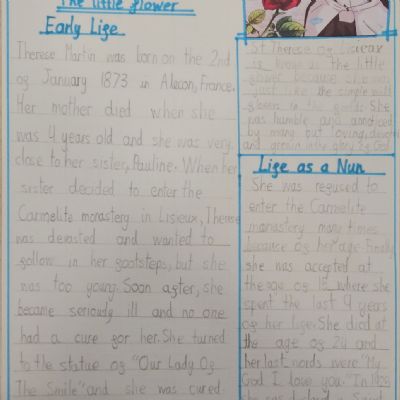 The little flower
Early Life
Therese Martin was born on the 2nd
of January 1873 in Alecon, France.
Her mother died when she
was 4 years old and she was very
close to her sister, Pauline. When her
sister decided to enter the
Carmelite monastery in Lisieux, Therese
was devasted and wanted to
follow in her footsteps, but she
was too young. Soon after, she
became seriously ill and no one
had a cure for her. She turned
to the statue of "Our Lady Of
The Smile" and she was cured.
St Therese of Lisieux
is as the little
flower because she was
just like the simple wild
in the She
was humble and
by many but loving,
and glory of God
Life as a Nun
She was refused to
enter the Carmelite
monastery many times
because of her age. Finally
she was accepted at
the age of 15, where she
spent the last 9 years
of her life. She died at
the age of 24 and
her last words were "My
God I love you." In